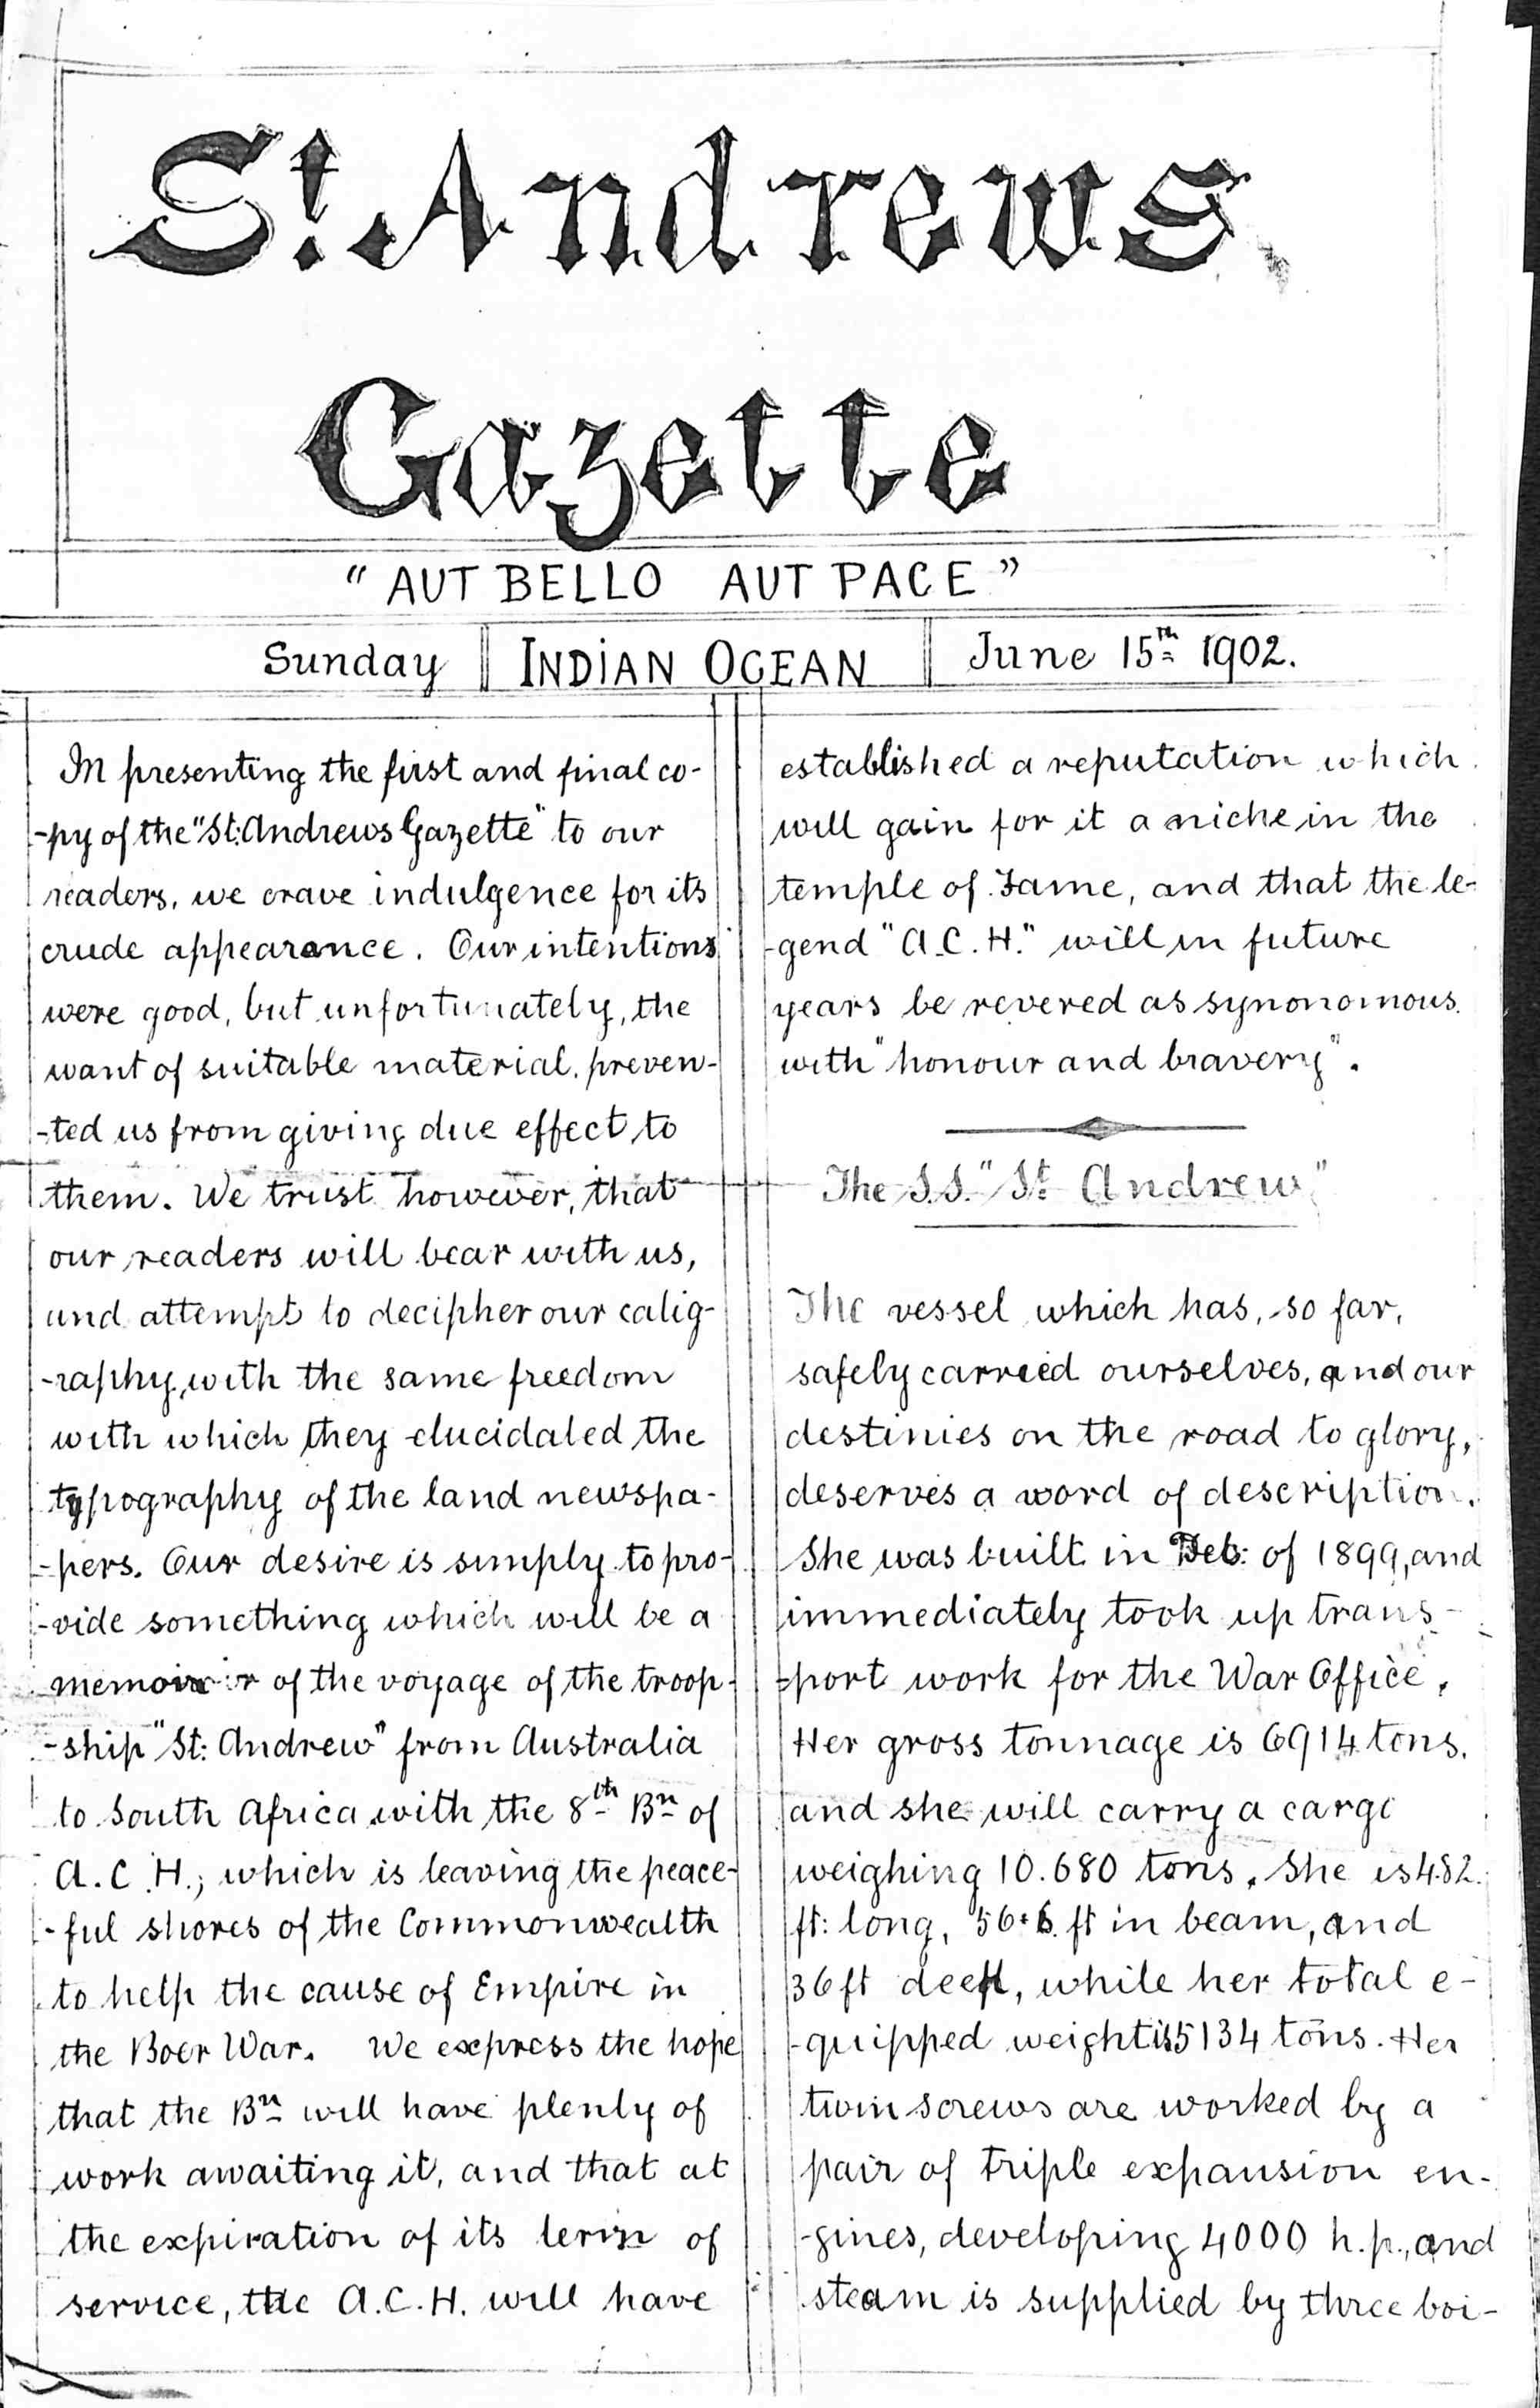 St. Andrews
Gazette
"AUT BELLO AUT PACE"
Sunday
INDIAN OCEAN
June 15th 1902.
In presenting the first and final co-
-py of the "St: Andrews Gazette" to our
readers, we crave indulgence for its
crude appearance. Our intentions
were good, but unfortunately, the
want of suitable material, preven-
-ted us from giving due effect to
them. We trust however, that
our readers will bear with us,
and attempt to decipher our calig-
-raphy, with the same freedom
with which they elucidated the
typography of the land newspa-
-pers. Our desire is simply to pro-
-vide something which will be a
memoir of the voyage of the troop-
-ship "St: Andrew" from Australia
to South Africa with the 8th Bn of
A.C.H.; which is leaving the peace-
-ful shores of the Commonwealth
to help the cause of Empire in
the Boer War. We express the hope
that the Bn will have plenty of
work awaiting it, and that at
the expiration of its term of
service, the A.C.H. will have
established a reputation which
will gain for it a niche in the
temple of Fame, and that the le-
-gend "A.C.H." will in future
years be revered as synonomous
with "honour and bravery".
The S.S. "St Andrew"
The vessel which has, so far,
safely carried ourselves, and our
destinies on the road to glory,
deserves a word of description.
She was built in Feb: of 1899, and
immediately took up trans-
-port work for the War Office.
Her gross tonnage is 6914 tons.
and she will carry a cargo
weighing 10.680 tons. She is 482
ft: long, 56.6 ft in beam, and
36 ft deep, while her total e-
-quipped weight is 5134 tons. Her
twin screws are worked by a
pair of triple expansion en-
-gines, developing 4000 h.p., and
steam is supplied by three boi-